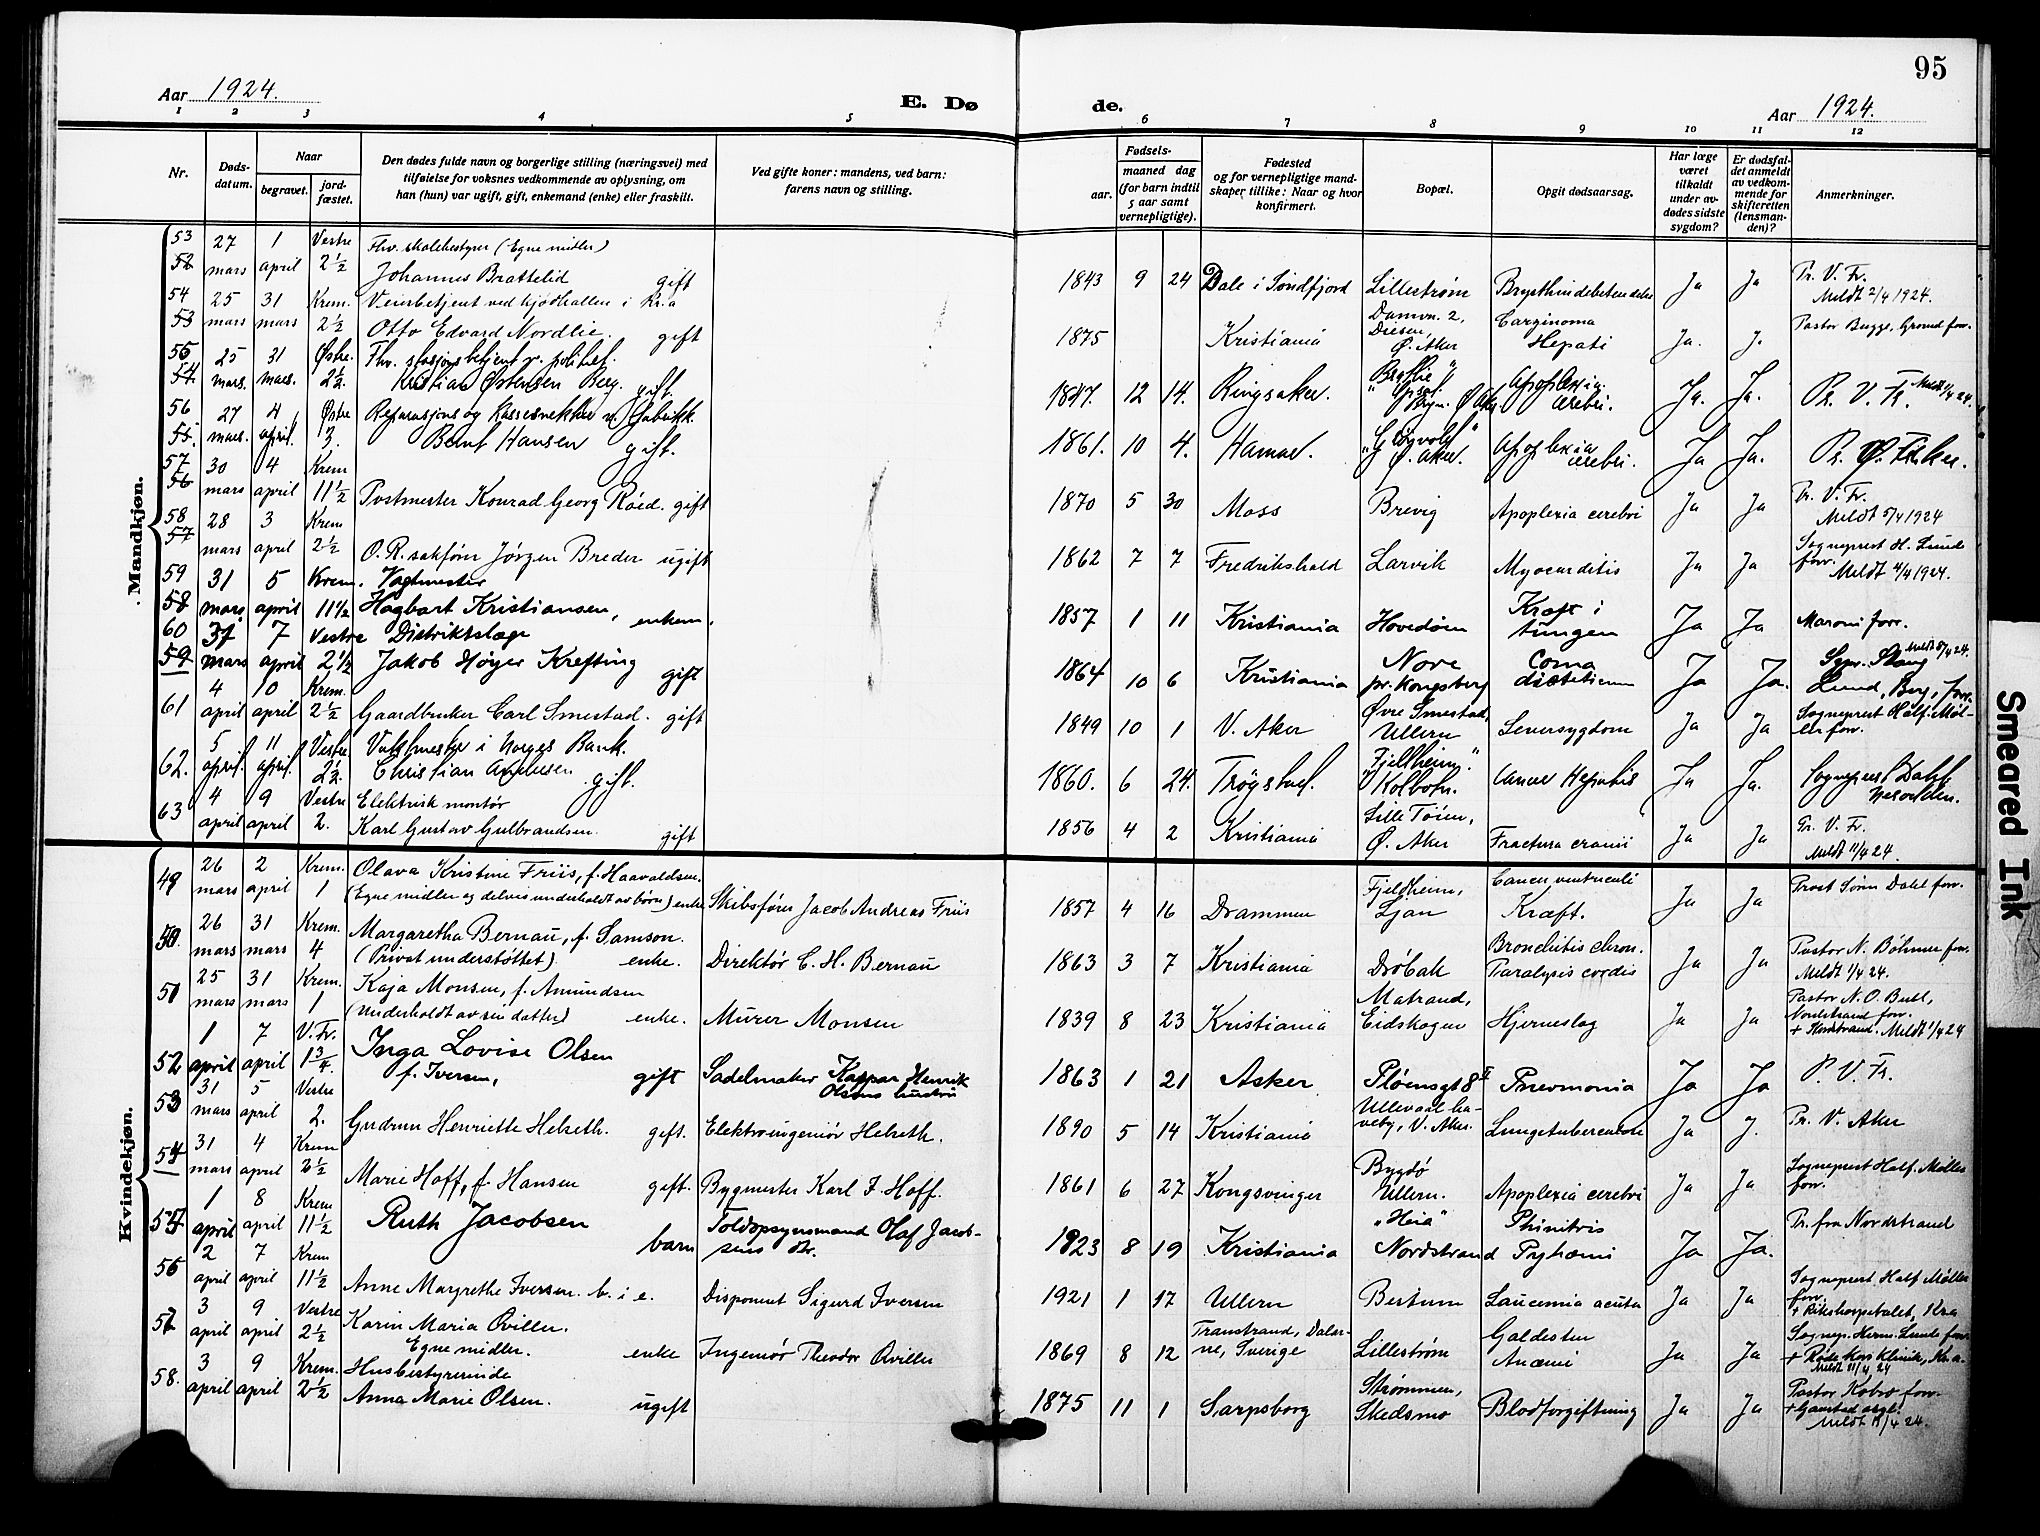 95
Aar 1924.
E. Dø
de.
Aar 1924.
1 2 3 4 5 6 7 8 9 10 11 12
Nr.
Døds-
datum.
Naar
begravet.
jord-
fæstet.
Den dødes fulde navn og borgerlige stilling (næringsvei) med
tilføielse for voksnes vedkommende av oplysning, om
han (hun) var ugift, gift, enkemand (enke) eller fraskilt.
Ved gifte koner: mandens, ved barn:
farens navn og stilling.
Fødsels-
aar.
maaned dag
(for barn indtil
5 aar samt
vernepligtige).
Fødested
og for vernepligtige mand-
skaper tillike: Naar og hvor
konfirmert.
Bopæl.
Opgit dødsaarsag.
Har læge
været
tilkaldt
under av-
dødes sidste
sygdom?
Er dødsfal-
det anmeldt
av vedkom-
mende for
skifteretten
(lensman-
den)?
Anmerkninger.
Mandkjøn.
53 27 1 Vestre Fhv. skolebestyrer (Egne midler)
52 mars april 2½ Johannes Brattelid gift 1843 9 24 Dale i Søndfjord Lillestrøm Brysthindebetendelse Ja Ja Pr. V. Fr.
Meldt 2/4 1924.
54 25 31 Krem. Veinbetjent ved kjødhallen i Kr.a
53 mars mars 2½ Otto Edvard Nordlie. gift 1875 Kristiania Damvn. 2,
Diesen,
Ø. Aker Carginoma
Hepati Ja. J. Pastor Bugge, Grorud forr.
55 25 31 Østre. Fhv. stasjonsbetjent v. politiet.
54. mars. mars. 2½. Kristian Østensen Berg. gift. 1847. 12 14. Ringsaker. Bryn. Ø Aker Apoplexia
cerebri. Ja. Ja. Pr. V. Fr. Meldt 1/4 24.
56 27 4 Østre Reparasjons og kassesnekker v. fabrikk
55. mars. april. 3. Bernt Hansen gift. 1861. 10 4. Hamar. Ø. Aker. Apoplexia
cerebri. Ja Ja. Pr. Ø. Aker.
57 30 4 Krem
56 mars april 11½ Postmester Konrad Georg Röed. gift 1870 5 30 Moss Brevig Apoplexia cerebri Ja Ja Pr. V. Fr.
Meldt 5/4 1924
58 28 3 Krem
57 mars april 2½ O. R. sakfører Jørgen Breder ugift 1862 7 7 Fredrikshald Larvik Myocarditis Ja Ja Sogneprest H. Lunde
forr.
Meldt 4/4 1924.
59 31 5 Krem. Vagtmester
58 mars april 11½ Hagbart Kristiansen, enkem. 1857 1 11 Kristiania Hovedöen Kræft i
tungen Ja Ja Maroni forr.
60 31 7 Vestre Distriktslæge
59 mars april 2½ Jakob Høyer Krefting gift 1864 10 6 Kristiania Nore
pr. Kongsberg Coma
diabeticum Ja Ja. Sgpr. Stang
Lund, Berg, forr.
61 4 10 Krem.
april april 2½ Gaardbruker Carl Smestad. gift 1849 10 1 V. Aker Øvre Smestad,
Ullern Leversygdom Ja Ja Sogneprest Half. Møl-
ler forr.
62. 5 11 Vestre Vaktmester i Norges Bank.
april. april. 2½. Christian Andersen gift. 1860. 6 24. Trøgstad. "Fjellheim".
Kolbotn. Cancer Hepatis Ja Ja. Sogneprest Dahl
Nesodden.
63 4 9 Vestre Elektrisk montör
april april 2. Karl Gustav Gulbrandsen. gift 1856 4 2 Kristiania Lille Töien,
Ø. Aker Fractura cranii Ja Ja Pr. V. Fr.
Meldt 11/4 24.
Kvindekjøn.
49 26 2 Krem. Olava Kristine Friis, f. Haavaldsen.
mars april 1 (Egne midler og delvis underholdt av børn) enke Skibsfører Jacob Andreas Friis 1857 4 16 Drammen Fjeldheim,
Ljan Cancer ventriculi
Kræft. Ja Ja Prost Sönn Dahl forr.
50. 26 31 Krem. Margaretha Bernau, f. Samson.
mars mars 4 (Privat understøttet). enke. Direktør C. H. Bernau 1863 3 7 Kristiania Dröbak Bronchitis chron.
Paralysis cordis Ja Ja Pastor N. Böhmer forr.
Meldt 1/4 24.
51 25 31 Krem. Kaja Monsen, f. Amundsen
mars mars 1 (Underholdt av sin datter) enke. Murer Monsen 1839 8 23 Kristiania Matrand,
Eidskogen Hjerneslag Ja Ja Pastor N. O. Bull,
Nordstrand forr.
+ Nordstrand. Meldt 1/4 24
52 1 7 V. Fr. Inga Lovise Olsen
april april 1¾ f. Iversen, gift Sadelmaker Kaspar Henrik
Olsens hustru 1863 1 21 Asker Plöensgt 8 II Pnevmonia Ja Ja P. V. Fr.
53 31 5 Vestre
mars april 2. Gudrun Henriette Helseth. gift. Elektroingeniør Helseth. 1890 5 14 Kristiania Ullevaal ha-
veby, V. Aker. Lungetuberculose Ja J. Pr. V. Aker
54 31 4 Krem
mars april 2½ Marie Hoff, f. Hansen gift. Bygmester Karl F. Hoff. 1861 6 27 Kongsvinger Bygdö
Ullern. Apoplexia cerebri Ja Ja Sogneprest Half. Møller
forr.
55 1 8 Krem Ruth Jacobsen
april april 11½ barn Toldopsynsmand Olaf Jacob-
sens dtr. 1923 8 19 Kristiania "Heia"
Nordstrand Rhinitis
Pyhæmi Ja Ja. Pr. fra Nordstrand
56 2 7 Krem
april april 11½ Anne Margrethe Iversen. b. i e. Disponent Sigurd Iversen 1921 1 17 Ullern Bestum Laucemia acuta Ja Ja Sogneprest Half Møller
forr.
+ Rikshospitalet, Kra
57 3 9 Vestre Karin Maria Qviller.
april april 2½ Egne midler. enke Ingeniör Theodor Qviller 1869 8 12 Transtrand, Dalar-
ne, Sverige Lillestrøm Galdesten
Anæmi Ja Ja Sognepr. Herm. Lunde forr.
+ Røde Kors Klinik, Kr.a.
Meldt 11/4 24
58. 3 9 Krem. Husbestyrerinde
april april 2½ Anna Marie Olsen. ugift 1875 11 1 Sarpsborg Strømmen,
Skedsmo Blodforgiftning Ja Ja Pastor Kobro forr.
+ Gaustad asyl.
Meldt 11/4 24.
Smeared Ink